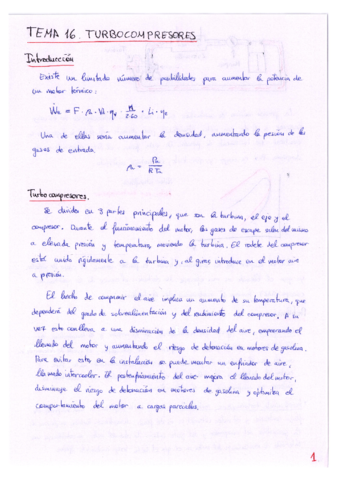 TEMA 16. TURBOCOMPRESORES
Introducción
Existe un limitado número de posibilidades para aumentar la potencia de
un motor térmico:
Ẇe = F · ρa · Vd · ηv · n/(2·60) · Li · ηe
Una de ellas sería aumentar la densidad, aumentando la presión de los
gases de entrada.
ρa = Pa/(R Ta)
Turbocompresores.
Se dividen en 3 partes principales, que son la turbina, el eje y el
compresor. Durante el funcionamiento del motor, los gases de escape salen del mismo
a elevada presión y temperatura, moviendo la turbina. El rodete del compresor
está unido rígidamente a la turbina y, al girar, introduce en el motor aire
a presión.
El hecho de comprimir el aire implica un aumento de su temperatura, que
dependerá del grado de sobrealimentación y del rendimiento del compresor, a su
vez esto conlleva a una disminución de la densidad del aire, empeorando el
llenado del motor y aumentando el riesgo de detonación en motores de gasolina.
Para evitar esto en la instalación se puede montar un enfriador de aire,
llamado intercooler. El postenfriamiento del aire mejora el llenado del motor,
disminuye el riesgo de detonación en motores de gasolina y optimiza el
comportamiento del motor a cargas parciales.
1